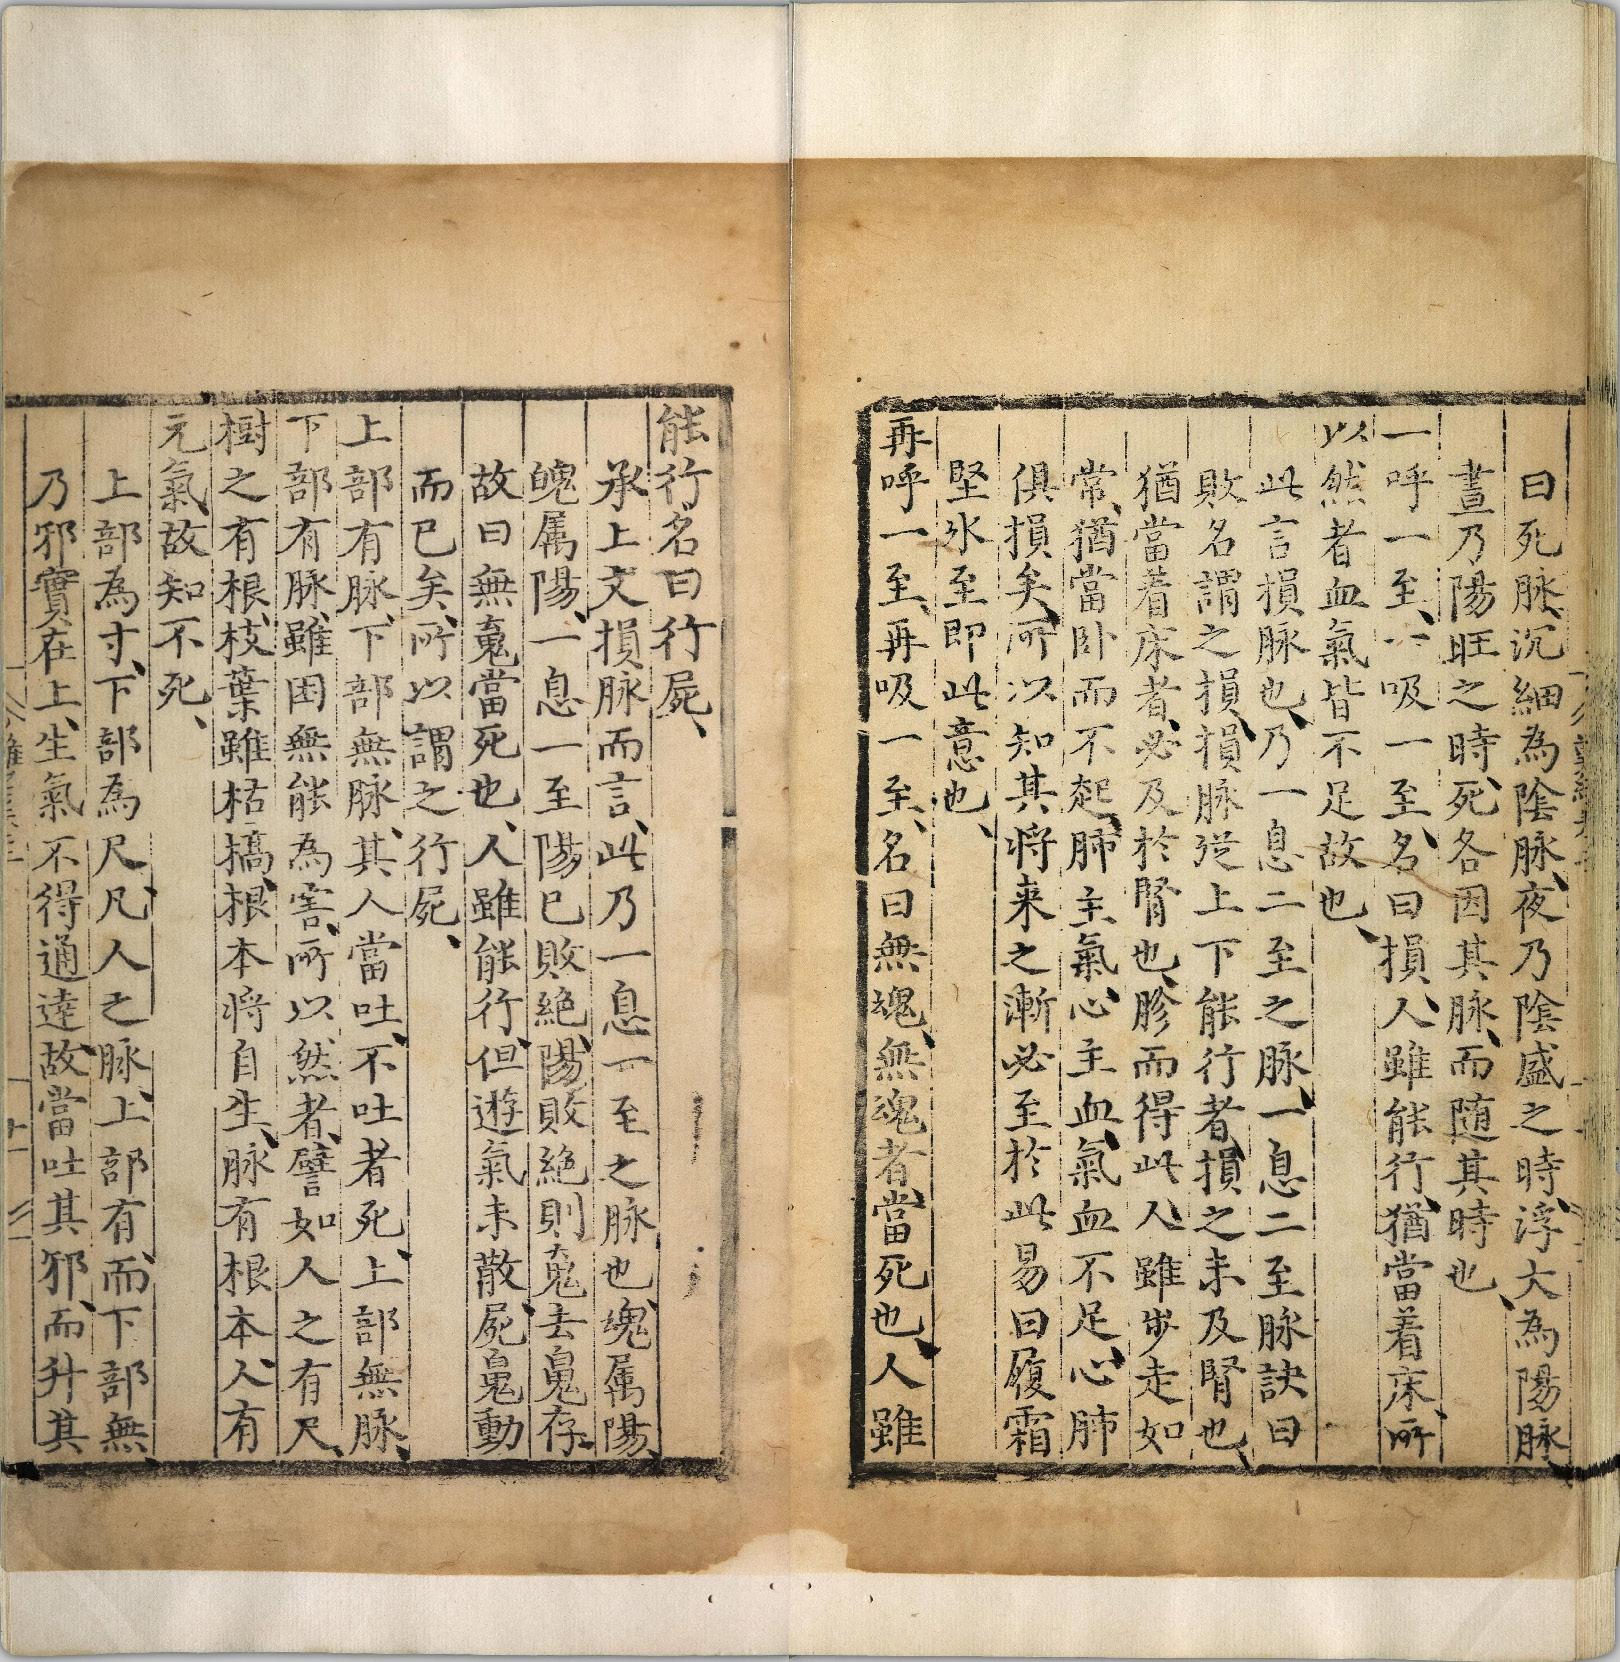 曰死脉、沉細為陰脉、夜乃陰盛之時、浮大為陽脉
晝乃陽旺之時、死各因其脉、而随其時也、
一呼一至、一吸一至、名曰損、人雖能行、猶當着床、所
以然者血氣皆不足故也、
此言損脉也、乃一息二至之脉、一息二至脉訣曰
敗名謂之損、損脉從上下能行者、損之未及腎也、
猶當着床者、必及於腎也、胗而得此、人雖步走如
常、猶當卧而不起、肺主氣、心主血、氣血不足、心肺
俱損矣、所以知其将来之漸必至於此易曰履霜
堅氷至即此意也、
再呼一至、再吸一至、名曰無魂、無魂者、當死也、人雖
能行名曰行屍、
承上文損脉而言、此乃一息一至之脉也、魂属陽、
魄属陽、一息一至陽已敗絶、陽敗絶則䰟去鬼存、
故曰無䰟當死也、人雖能行、但遊氣未散、屍鬼動
而已矣、所以謂之行屍、
上部有脉、下部無脉、其人當吐、不吐者死、上部無脉、
下部有脉、雖困無能為害、所以然者、譬如人之有尺、
樹之有根、枝葉雖枯槁、根本将自生、脉有根本、人有
元氣、故知不死、
上部為寸、下部為尺、凡人之脉、上部有、而下部無、
乃邪實在上、生氣不得通達、故當吐其邪、而升其